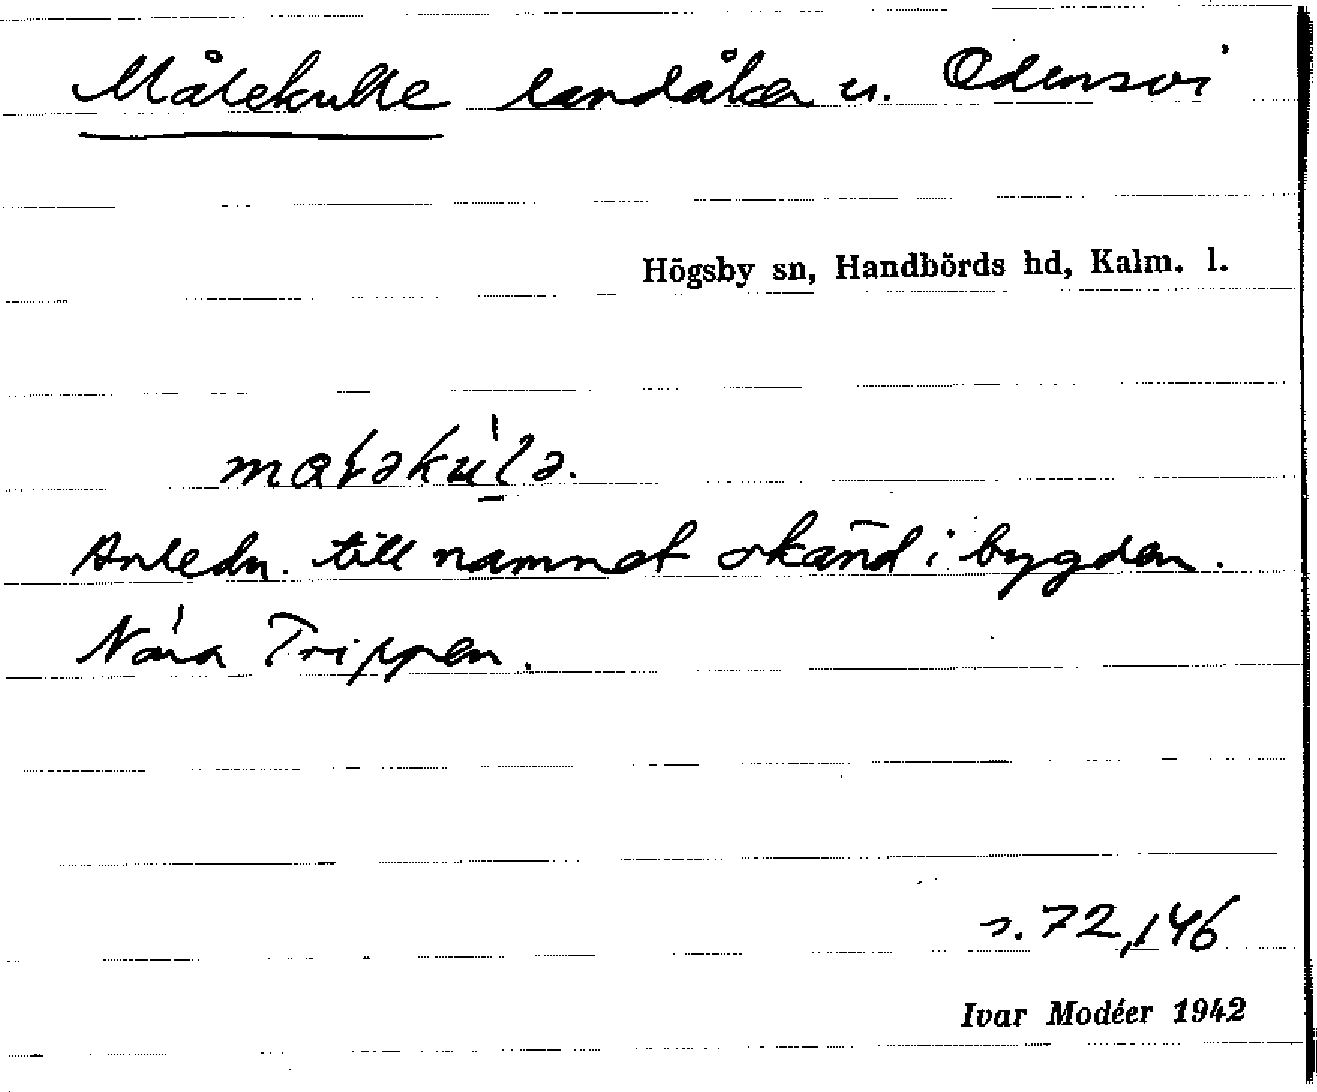 Målekulle landåker u. Odensvi
Högsby sn, Handbörds hd, Kalm. l.
Anledn. till namnet okänd i bygden.
Nära Trippen.
s. 72, 146
Ivar Modéer 1942